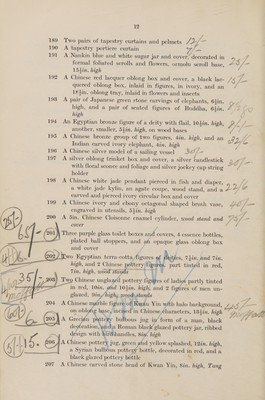 12
189 Two pairs of tapestry curtains and pelmets 12/-
190 A tapestry portiere curtain 7/-
191 A Nankin blue and white sugar jar and cover, decorated in
formal foliated scrolls and flowers, ormolu scroll base,
15½in. high
192 A Chinese red lacquer oblong box and cover, a black lac-
quered oblong box, inlaid in figures, in ivory, and an
18½in. oblong tray, inlaid in flowers and insects
193 A pair of Japanese green stone carvings of elephants, 6½in.
high, and a pair of seated figures of Buddha, 6½in.
high
194 An Egyptian bronze figure of a deity with flail, 10½in. high,
another, smaller, 5½in. high, on wood bases
195 A Chinese bronze group of two figures, 4in. high, and an
Indian carved ivory elephant, 4in. high
196 A Chinese silver model of a sailing vessel 30/-
197 A silver oblong trinket box and cover, a silver handlestick
with floral sconce and foliage and silver jockey cap string
holder
198 A Chinese white jade pendant pierced in fish and diaper,
a white jade kylin, an agate coupe, wood stand, and a
carved and pierced ivory circular box and cover
199 A Chinese ivory and ebony octagonal shaped brush vase,
engraved in utensils, 5½in. high
200 A 5in. Chinese Cloisonne enamel cylinder, wood stand and
cover
201 Three purple glass toilet boxes and covers, 4 essence bottles,
plated ball stoppers, and an opaque glass oblong box
and cover
202 Two Egyptian terra-cotta figures of deities, 7½in. and 7in.
high, and 2 Chinese pottery figures, part tinted in red,
7in. high, wood stands
203 Two Chinese unglazed pottery figures of ladies partly tinted
in red, 10in. and 10½in. high, and 2 figures of men un-
glazed, 9in. high, wood stands
204 A Chinese marble figure of Kwan Yin with halo background,
on oblong base, incised in Chinese characters, 18½in. high
205 A Grecian pottery bulbous jug in form of a man, black
decoration, a Roman black glazed pottery jar, ribbed
design with 2 handles, 6in. high
206 A Chinese pottery jog, green and yellow splashed, 12in. high,
a Syrian bulbous pottery bottle, decorated in red, and a
black glazed pottery bottle
207 A Chinese carved stone head of Kwan Yin, 8in. high, Tang